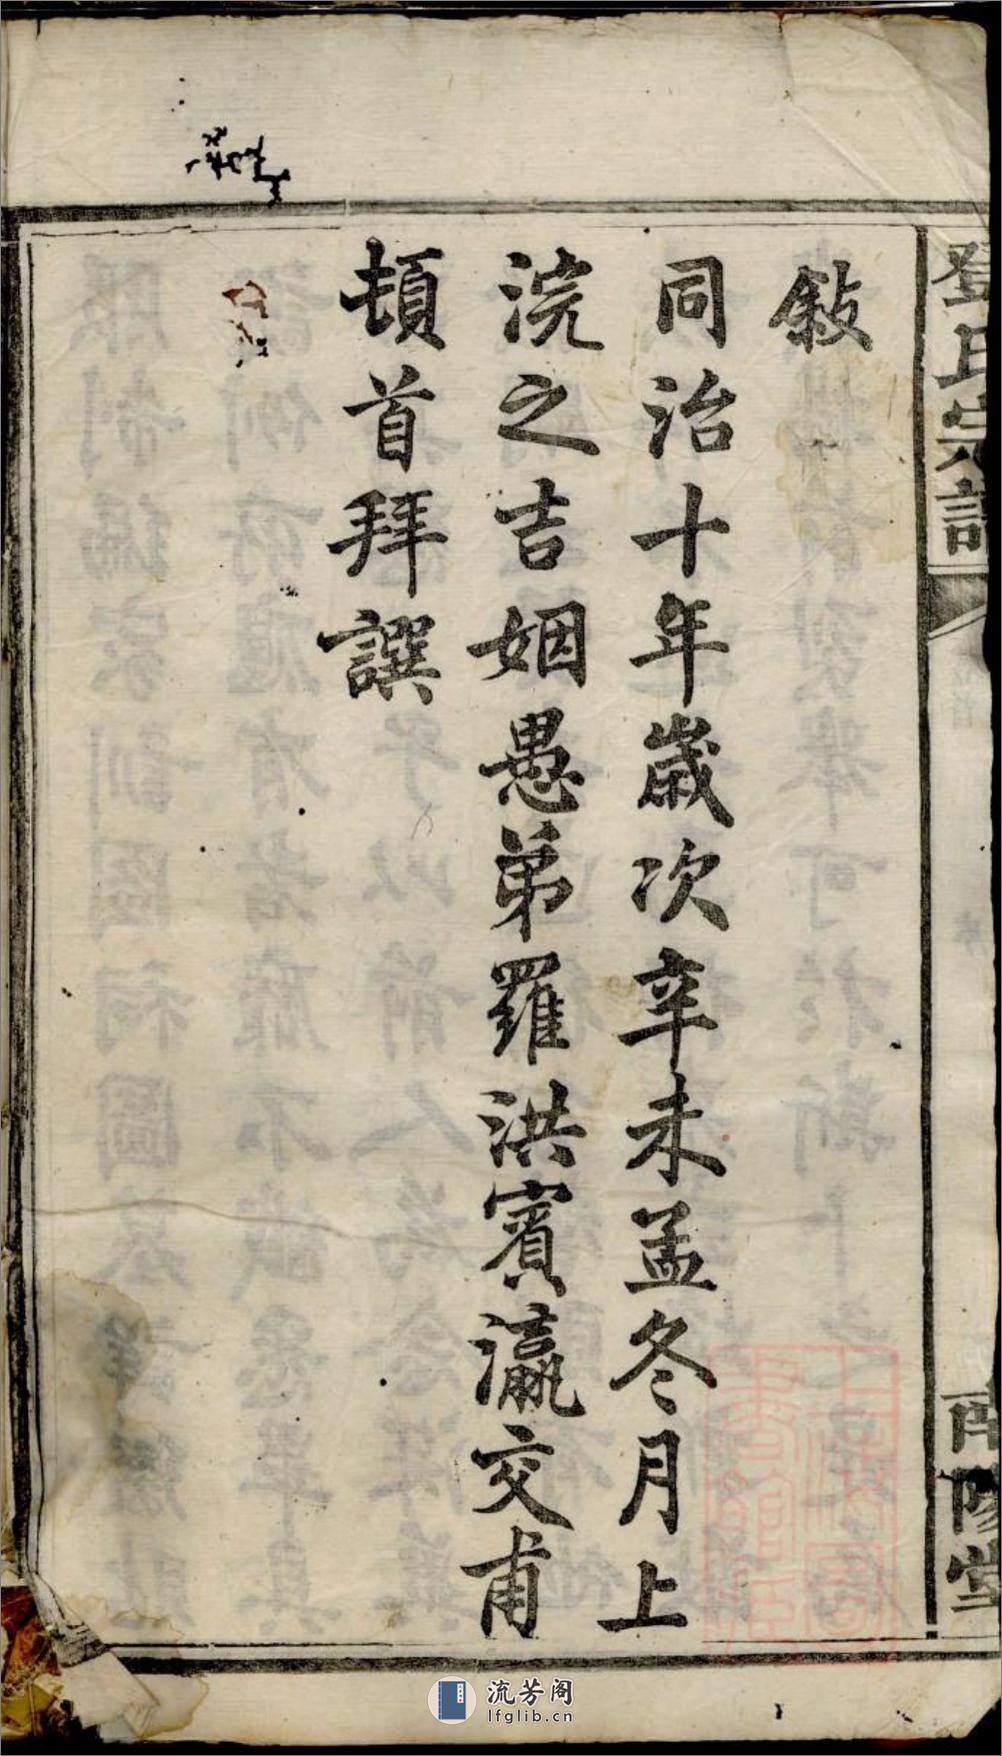 鄧氏宗譜
南陽堂
敍
同治十年歲次辛未孟冬月上
浣之吉姻愚弟羅洪賓瀛交甫
頓首拜譔
流芳阁
lfglib.cn